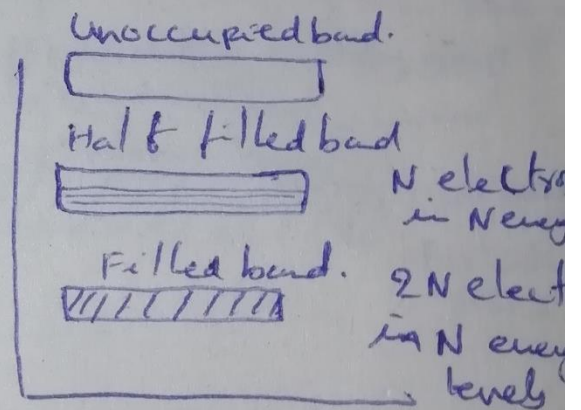 Unoccupied band.
Half filled band
N electro
in N energ
Filled band.
2N elect
in N energ
levels